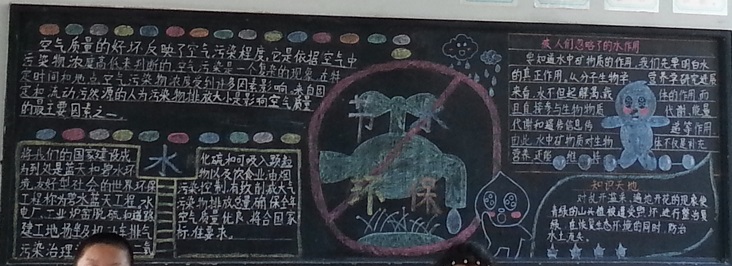 空气质量的好坏反映了空气污染程度,它是依据空气中
污染物浓度高低来判断的。空气污染是一个复杂的现象,在特
定时间和地点空气污染物浓度受到许多因素影响。来自固
定和流动污染源的人为污染物排放大小是影响空气质量
的最主要因素之一。
将我们的国家建设成
为到处是蓝天和碧水环
境友好型社会的世界环保
工程称为雾水蓝天工程。水
电厂、工业炉窑脱硫和道路
建工地扬尘及机动车排气
污染治理
水
化硫和可吸入颗粒
物以及饮食业油烟
污染控制,有效削减大气
污染物排放总量,确保全年
空气质量优良,符合国家
标准要求。
节水
环保
被人们忽略了的水作用
要知道水中矿物质的作用,我们先要明白水
的真正作用。从分子生物学 营养学研究进展
来看,水不但起解渴载 体的作用而
且直接参与生物物质 代谢、能量
代谢和遗传信息传 递等作用
由此,水中矿物质对生物 体不仅是补充
营养
知识天地
对于开温采、遍地开花的现象使
青绿的山
境,在恢复生态环境的同时,防治
水土流失。